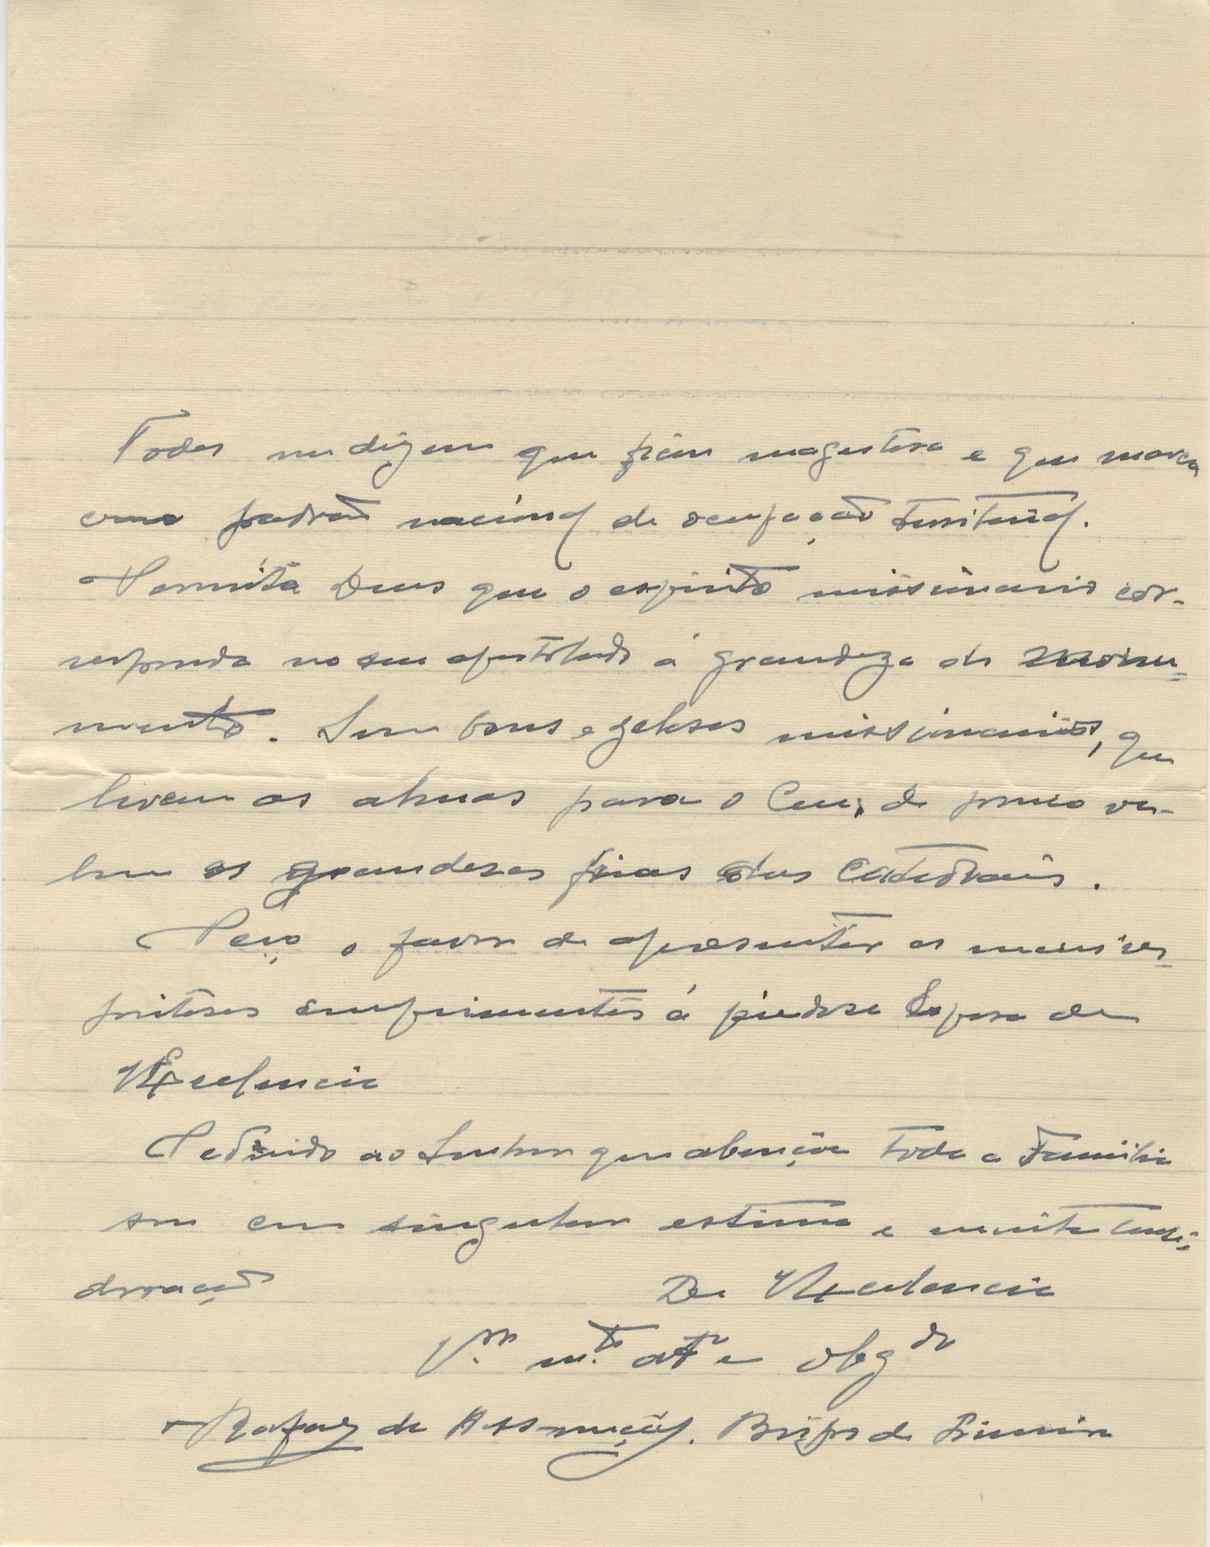 Todos me dizem que ficou magestosa e que marca
como padrão nacional de ocupação territorial.
Permita Deus que o espirito missionario cor-
responda no seu apostolado á grandeza do Monu-
mento. Sem bons e zelosos missionarios, que
levem as almas para o Ceu, de pouco va-
lem as grandezas frias das Catedrais.
Peço o favor de apresentar os meus res-
peitosos cumprimentos á piedosa Esposa de
V Excelencia
Pedindo ao Senhor que abençoe toda a Familia
sou com singular estima e muita consi-
deração De V Excelencia
V.or m.to att.o e obgdo
+ Rafael de Assunção. Bispo de Limira